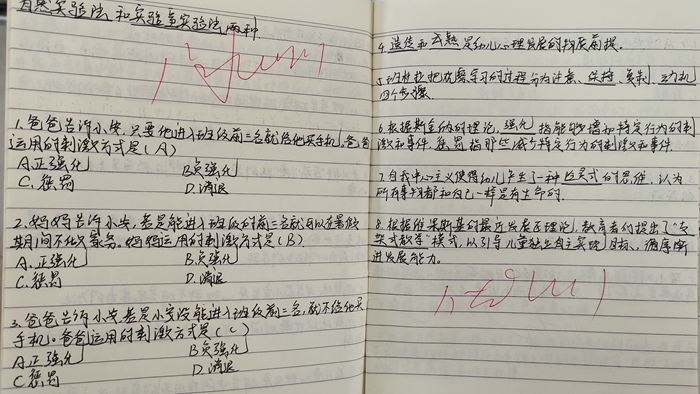 自然实验法和实验室实验法两种
1.爸爸告诉小安,只要他进入班级前三名就给他买手机,爸爸
运用的刺激方式是(A)
A.正强化 B负强化
C.惩罚 D.消退
2.妈妈告诉小安,若是能进入班级的前三名就可以在暑假
期间不做家务。妈妈运用的刺激方式是(B)
A.正强化 B.负强化
C.惩罚 D.消退
3.爸爸告诉小安若是小安没能进入班级前三名,就不给他买
手机。爸爸运用的刺激方式是(C)
A.正强化 B负强化
C惩罚 D.消退
4.遗传和成熟是幼儿心理发展的物质前提。
5.班杜拉把观察学习的过程分为注意、保持、复制、动机
四个步骤
6.根据斯金纳的理论,强化指能够增加特定行为的刺
激和事件,惩罚指那些减少特定行为的刺激和事件.
7.自我中心主义使得幼儿产生了一种泛灵式的思维,认为
所有事物都和自己一样是有生命的.
8.根据维果斯基的最近发展区理论,教育者们提出了"支
架式教学"模式,以引导儿童独立自主实现目标,循序渐
进发展能力。